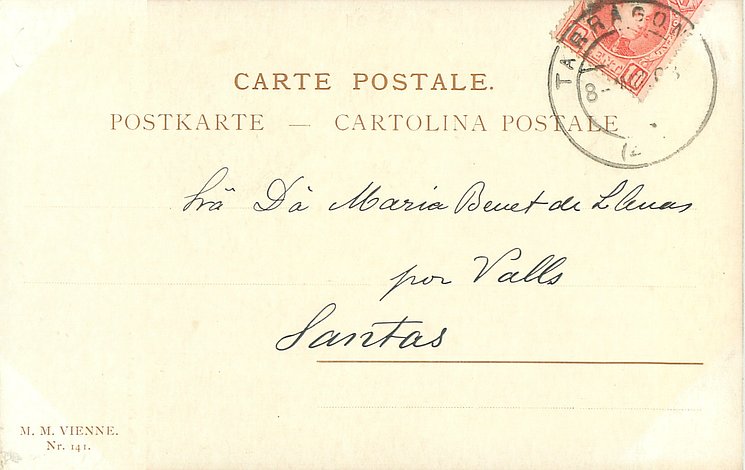 CARTE POSTALE.
POSTKARTE — CARTOLINA POSTALE
TARRAGONA
8
10
Srã Dã Maria Benet de Llanas
por Valls
Santas
M. M. VIENNE.
Nr. 141.